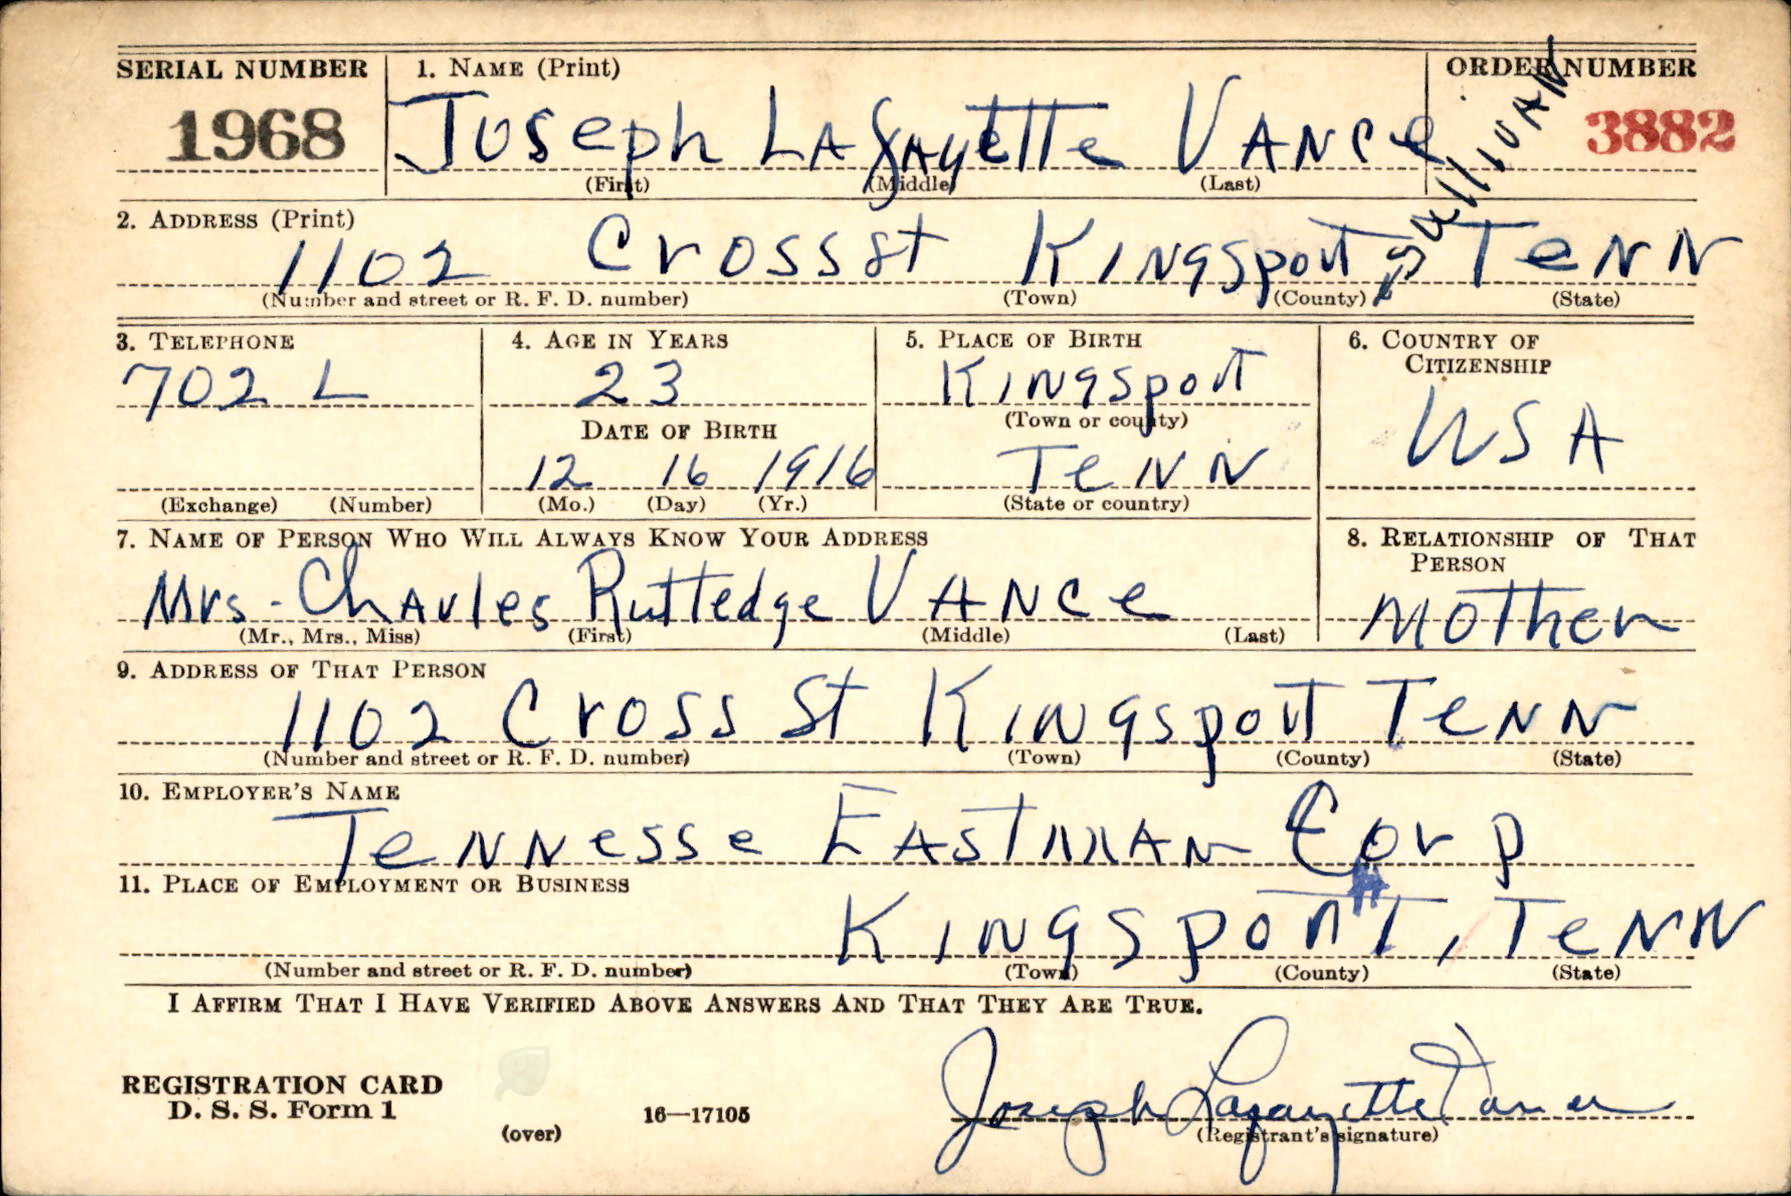 SERIAL NUMBER 1. NAME (Print) ORDER NUMBER
1968 Joseph LAfAyette VANCe 3882
(First) (Middle) (Last)
2. ADDRESS (Print)
1102 Cross st KINgsport Sullivan TeNN
(Number and street or R. F. D. number) (Town) (County) (State)
3. TELEPHONE 4. AGE IN YEARS 5. PLACE OF BIRTH 6. COUNTRY OF CITIZENSHIP
702 L 23 KINgsport USA
(Town or county)
DATE OF BIRTH
12 16 1916 TeNN
(Exchange) (Number) (Mo.) (Day) (Yr.) (State or country)
7. NAME OF PERSON WHO WILL ALWAYS KNOW YOUR ADDRESS 8. RELATIONSHIP OF THAT PERSON
Mrs - ChArles Ruttedge VANCe Mother
(Mr., Mrs., Miss) (First) (Middle) (Last)
9. ADDRESS OF THAT PERSON
1102 Cross St KINgsport TeNN
(Number and street or R. F. D. number) (Town) (County) (State)
10. EMPLOYER'S NAME
TeNNesse EASTMAN Corp
11. PLACE OF EMPLOYMENT OR BUSINESS
KINgsporT, TeNN
(Number and street or R. F. D. number) (Town) (County) (State)
I AFFIRM THAT I HAVE VERIFIED ABOVE ANSWERS AND THAT THEY ARE TRUE.
Joseph Lafayette Vance
REGISTRATION CARD
D. S. S. Form 1 16—17105
(over) (Registrant's signature)